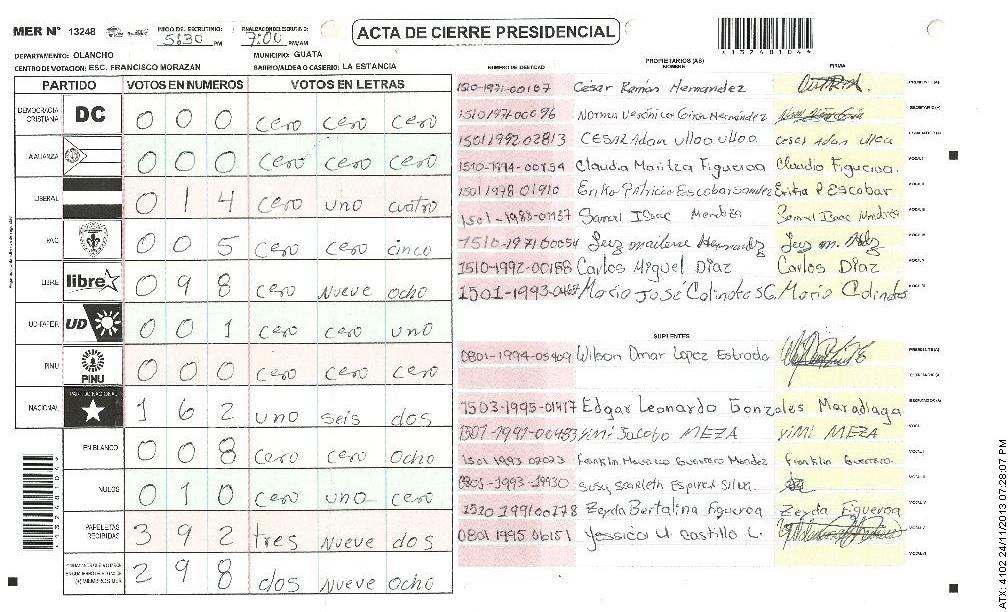 MER N° 13248
INICIO DEL ESCRUTINIO: 5:30 PM
FINALIZACION DEL ESCRUTINIO: 7:00 PM/AM
ACTA DE CIERRE PRESIDENCIAL
DEPARTAMENTO: OLANCHO
MUNICIPIO: GUATA
CENTRO DE VOTACION: ESC. FRANCISCO MORAZAN
BARRIO/ALDEA O CASERIO: LA ESTANCIA
PARTIDO VOTOS EN NUMEROS VOTOS EN LETRAS
DEMOCRACIA CRISTIANA DC 0 0 0 cero cero cero
LA ALIANZA 0 0 0 cero cero cero
LIBERAL 0 1 4 cero uno cuatro
PAC 0 0 5 cero cero cinco
LIBRE libre 0 9 8 cero nueve ocho
UD-FAPER UD 0 0 1 cero cero uno
PINU PINU 0 0 0 cero cero cero
NACIONAL PARTIDO NACIONAL 1 6 2 uno seis dos
EN BLANCO 0 0 8 cero cero ocho
NULOS 0 1 0 cero uno cero
PAPELETAS RECIBIDAS 3 9 2 tres nueve dos
2 9 8 dos nueve ocho
NUMERO DE IDENTIDAD
PROPIETARIOS (AS)
NOMBRE
FIRMA
1510-1971-00167 César Ramón Hernandez
PRESIDENTE (A)
1510197100096 Norma Verónica Hernández
SECRETARIO (A)
1501199202813 CESAR Adan Ulloa Ulloa cesar Adan Ulloa
ESCRUTADOR (A)
1510-1994-00154 Claudia Maritza Figueroa Claudia Figueroa.
VOCAL I
1501197801910 Erika Patricia Escobar Erika P Escobar
VOCAL II
1501-1983-01137 Samuel Isaac Mendoza Samuel Isaac Mendoza
1510-197100054 Luz marlene Hernandez Luz m. Hdz
1510-1992-00188 Carlos Miguel Díaz Carlos Díaz
1501-1993- Mario José Colindres Mario Colindres
SUPLENTES
0801-1994-05409 Wilson Omar Lopez Estrada
PRESIDENTE (A)
SECRETARIO (A)
1503-1995-01417 Edgar Leonardo Gonzales Maradiaga
ESCRUTADOR (A)
1501-1991-00483 yimi Jacobo MEZA yiMi MEZA
1501 1993 02023 Franklin Mauricio Guerrero Mendez Franklin Guerrero
0801-1993-19930 Susy Scarleth Espinal Silva
1520 199100178 Zeyda Bertalina Figueroa Zeyda Figueroa
0801 1995 06151 yessica U. Castillo L.
ATX: 4102 24/11/2013 07:28:07 PM